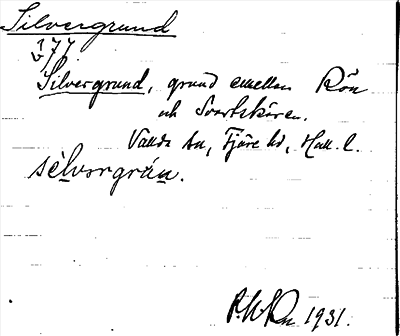 Silvergrund
177
Silvergrund, grund emellan Rön
och Svartskären.
Vallda sn, Fjäre hd, Hall. l.
sèlvorgrún.
1931.